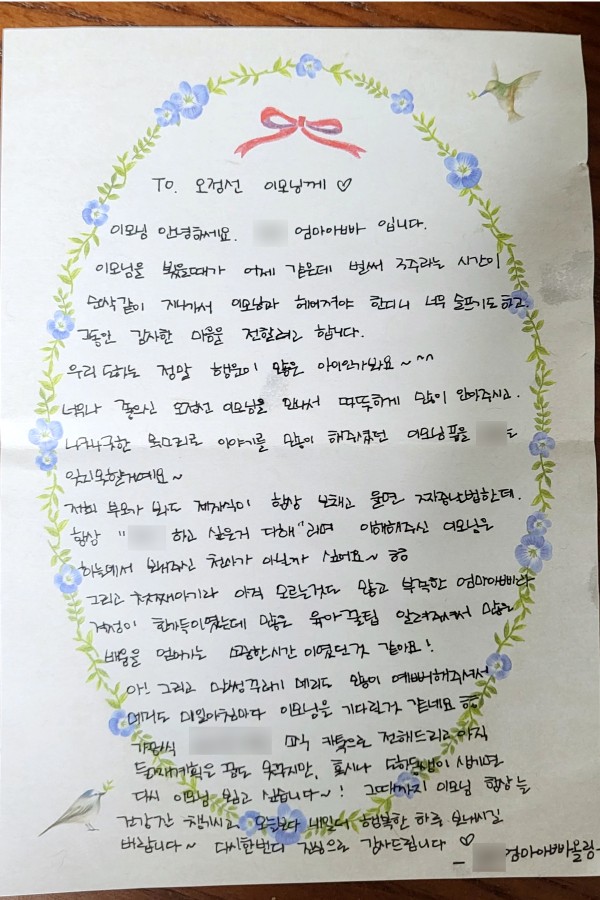 To. 오정선 이모님께 ♡
이모님 안녕하세요. 엄마아빠 입니다.
이모님을 뵀을때가 어제 같은데 벌써 3주라는 시간이
순삭같이 지나가서 이모님과 헤어져야 한다니 너무 슬프기도하고.
그동안 감사한 마음을 전할려고 합니다.
우리 는 정말 행운이 많은 아이인가봐요~^^
너무나 좋으신 오정선 이모님을 만나서 따뜻하게 많이 안아주시고.
나긋나긋한 목소리로 이야기를 많이 해주셨던 이모님품을 도
잊지못할거예요~
저희 부모가 봐도 제자식이 항상 보채고 울면 짜증날법한데.
항상 " 하고 싶은거 다해"라며 이해해주신 이모님은
하늘에서 보내주신 천사가 아닌가 싶어요~
그리고 첫째아기라 아직 모르는것도 많고 부족한 엄마아빠라
걱정이 한가득이였는데 많은 육아꿀팁 알려주셔서 많은
배움을 얻어가는 소중한시간 이였던것 같아요!
아! 그리고 말썽꾸러기 메리도 많이 예뻐해주셔서
메리도 매일아침마다 이모님을 기다릴거 같네요
가정식 카톡으로 전해드리고 아직
둘째계획은 꿈도 못꾸지만, 혹시나 동생이 생기면
다시 이모님 뵙고 싶습니다~! 그때까지 이모님 항상 늘
건강 잘 챙기시고 오늘보다 내일더 행복한 하루 보내시길
바랍니다~ 다시한번더 진심으로 감사드립니다 ♡
- 엄마아빠올림-